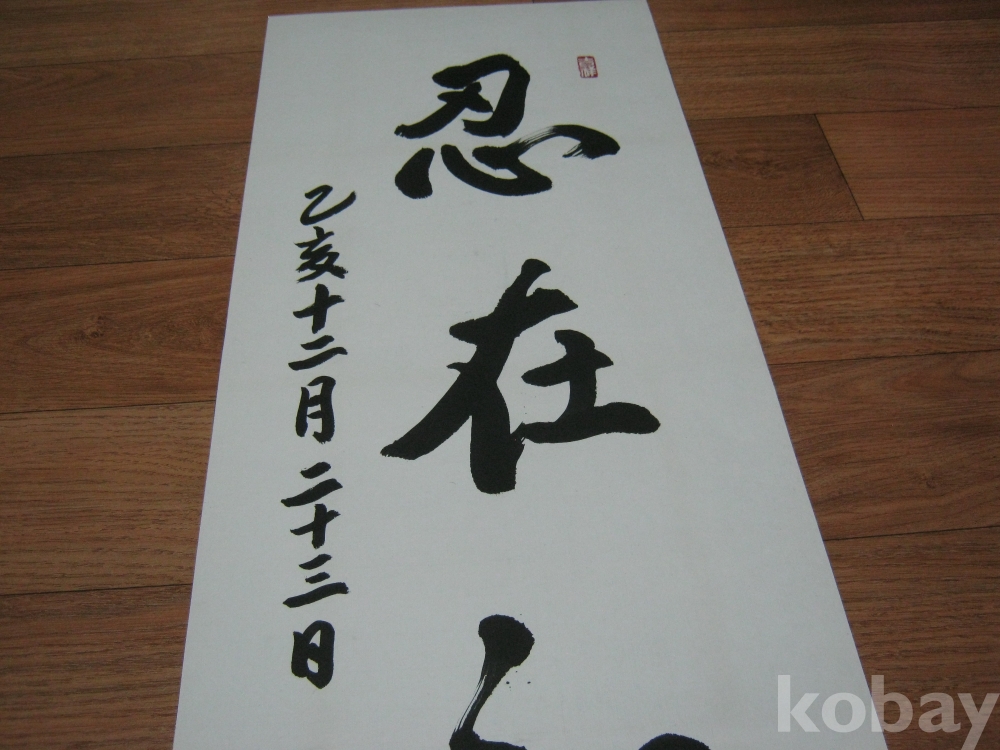 忍在
乙亥十二月二十三日
kobay